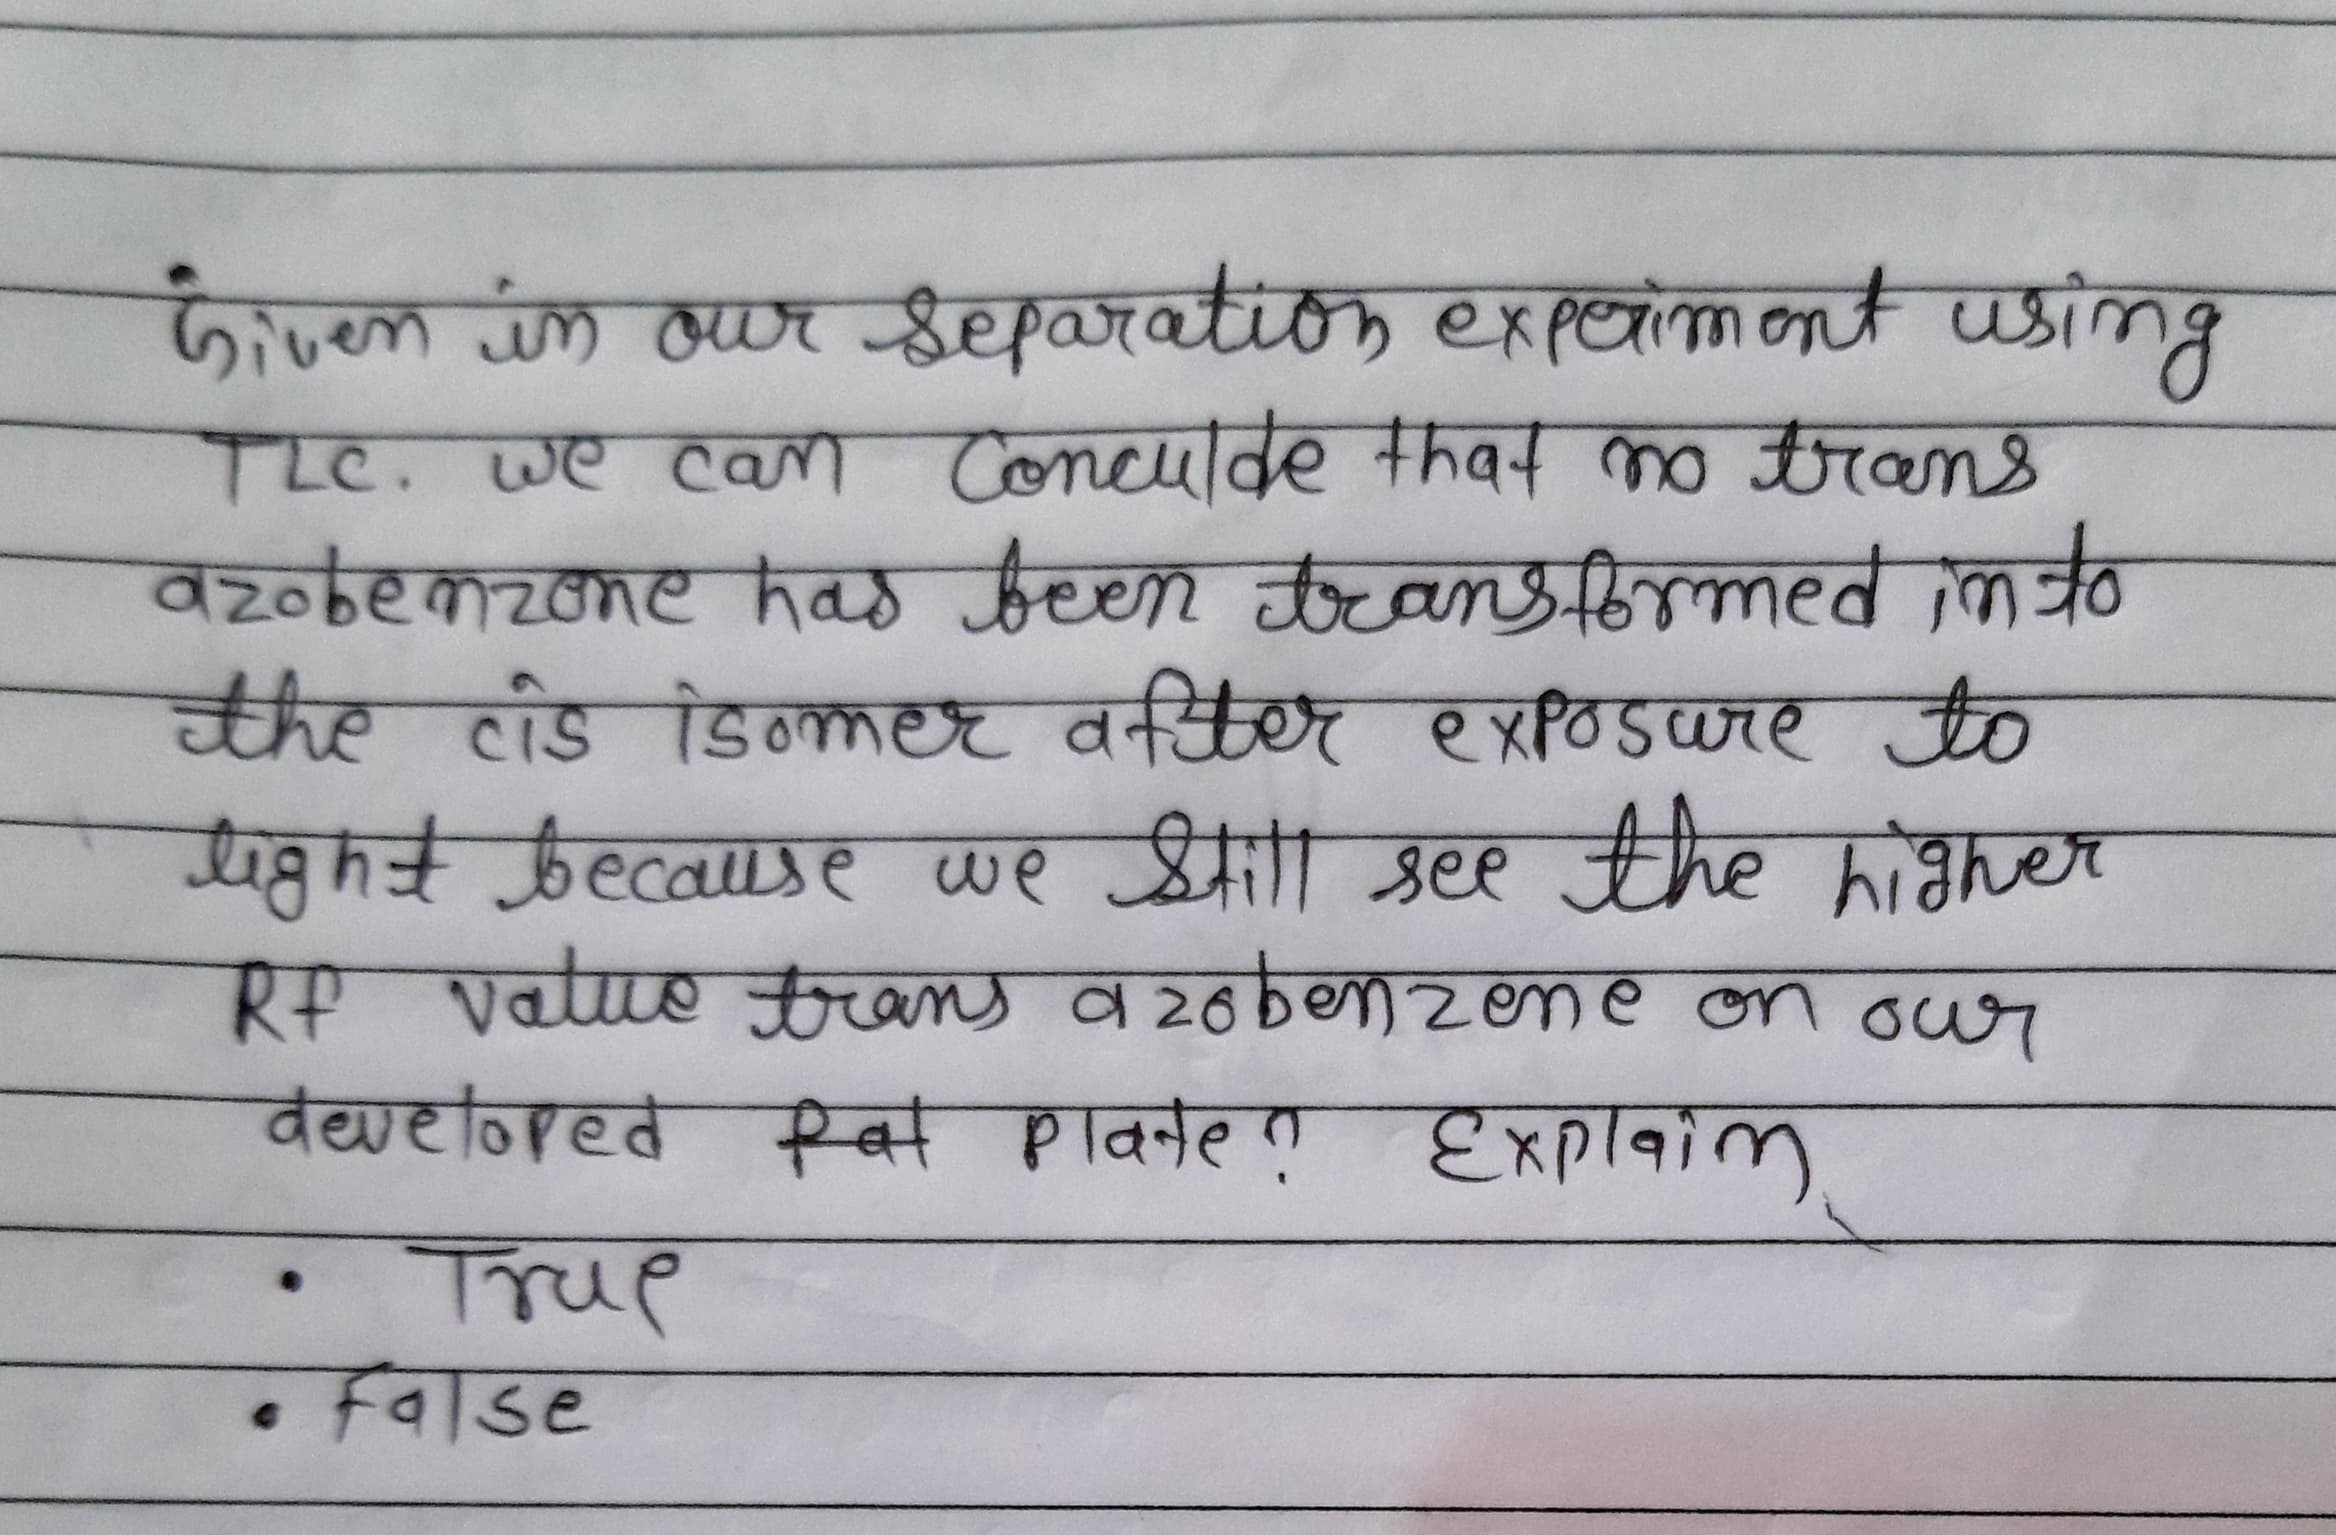 Given in our separation experiment using
TLC. we can Conculde that no trans
azobenzone has been transformed into
the cis isomer after exposure to
light because we still see the higher
Rf value trans azobenzene on our
developed Pat plate? Explain
• True
• False